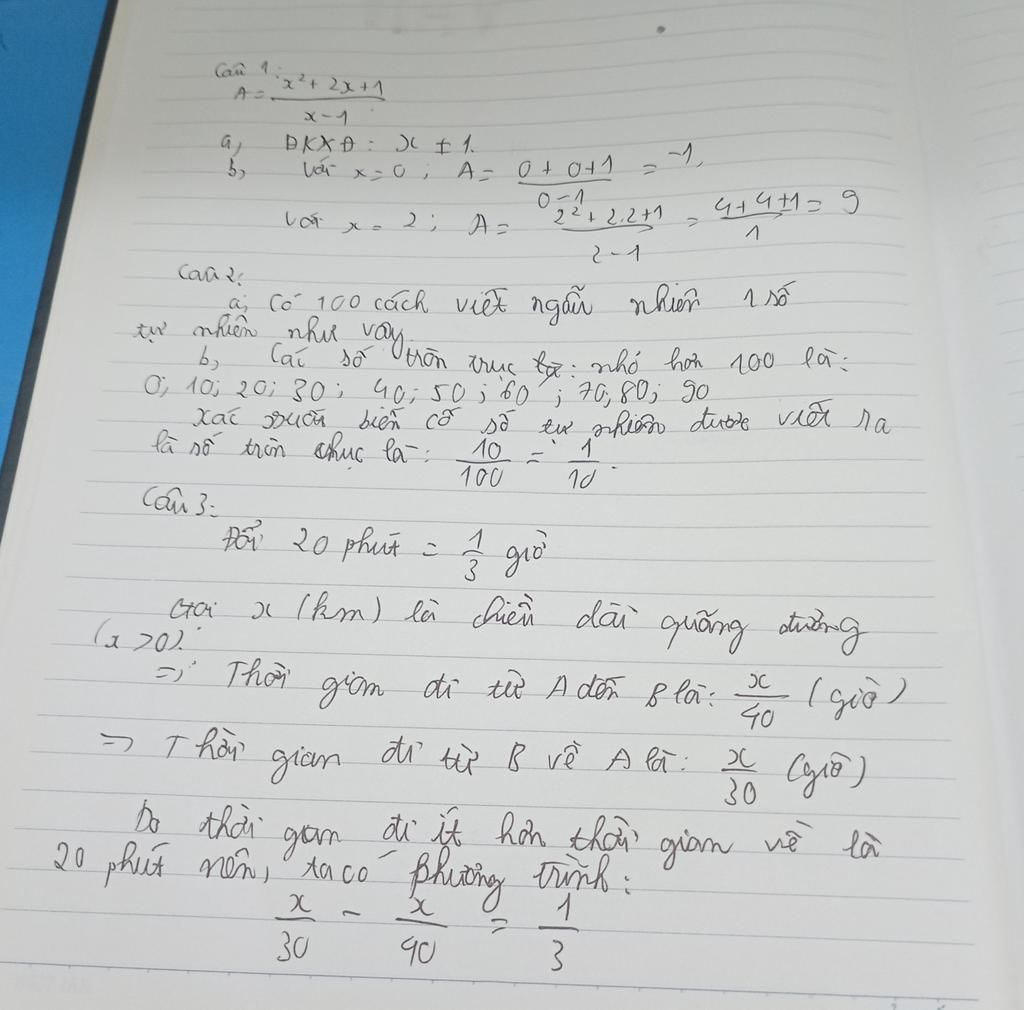 Câu 1:
A = (x² + 2x + 1)/(x - 1)
a, ĐKXĐ: x ≠ 1.
b, Với x = 0; A = (0 + 0 + 1)/(0 - 1) = -1,
Với x = 2; A = (2² + 2.2 + 1)/(2 - 1) = (4 + 4 + 1)/1 = 9
Câu 2:
a, Có 100 cách viết ngẫu nhiên 1 số
tự nhiên như vậy
b, Các số tròn trục là: nhỏ hơn 100 là:
0; 10; 20; 30; 40; 50; 60; 70, 80; 90
xác xuất biến cố số tự nhiên được viết ra
là số tròn chục là: 10/100 = 1/10.
Câu 3:
Đổi 20 phút = 1/3 giờ
Gọi x (km) là chiều dài quãng đường
(x > 0).
=> Thời gian đi từ A đến B là: x/40 (giờ)
=> Thời gian đi từ B về A là: x/30 (giờ)
Do thời gian đi ít hơn thời gian về là
20 phút nên, ta có phương trình:
x/30 - x/40 = 1/3